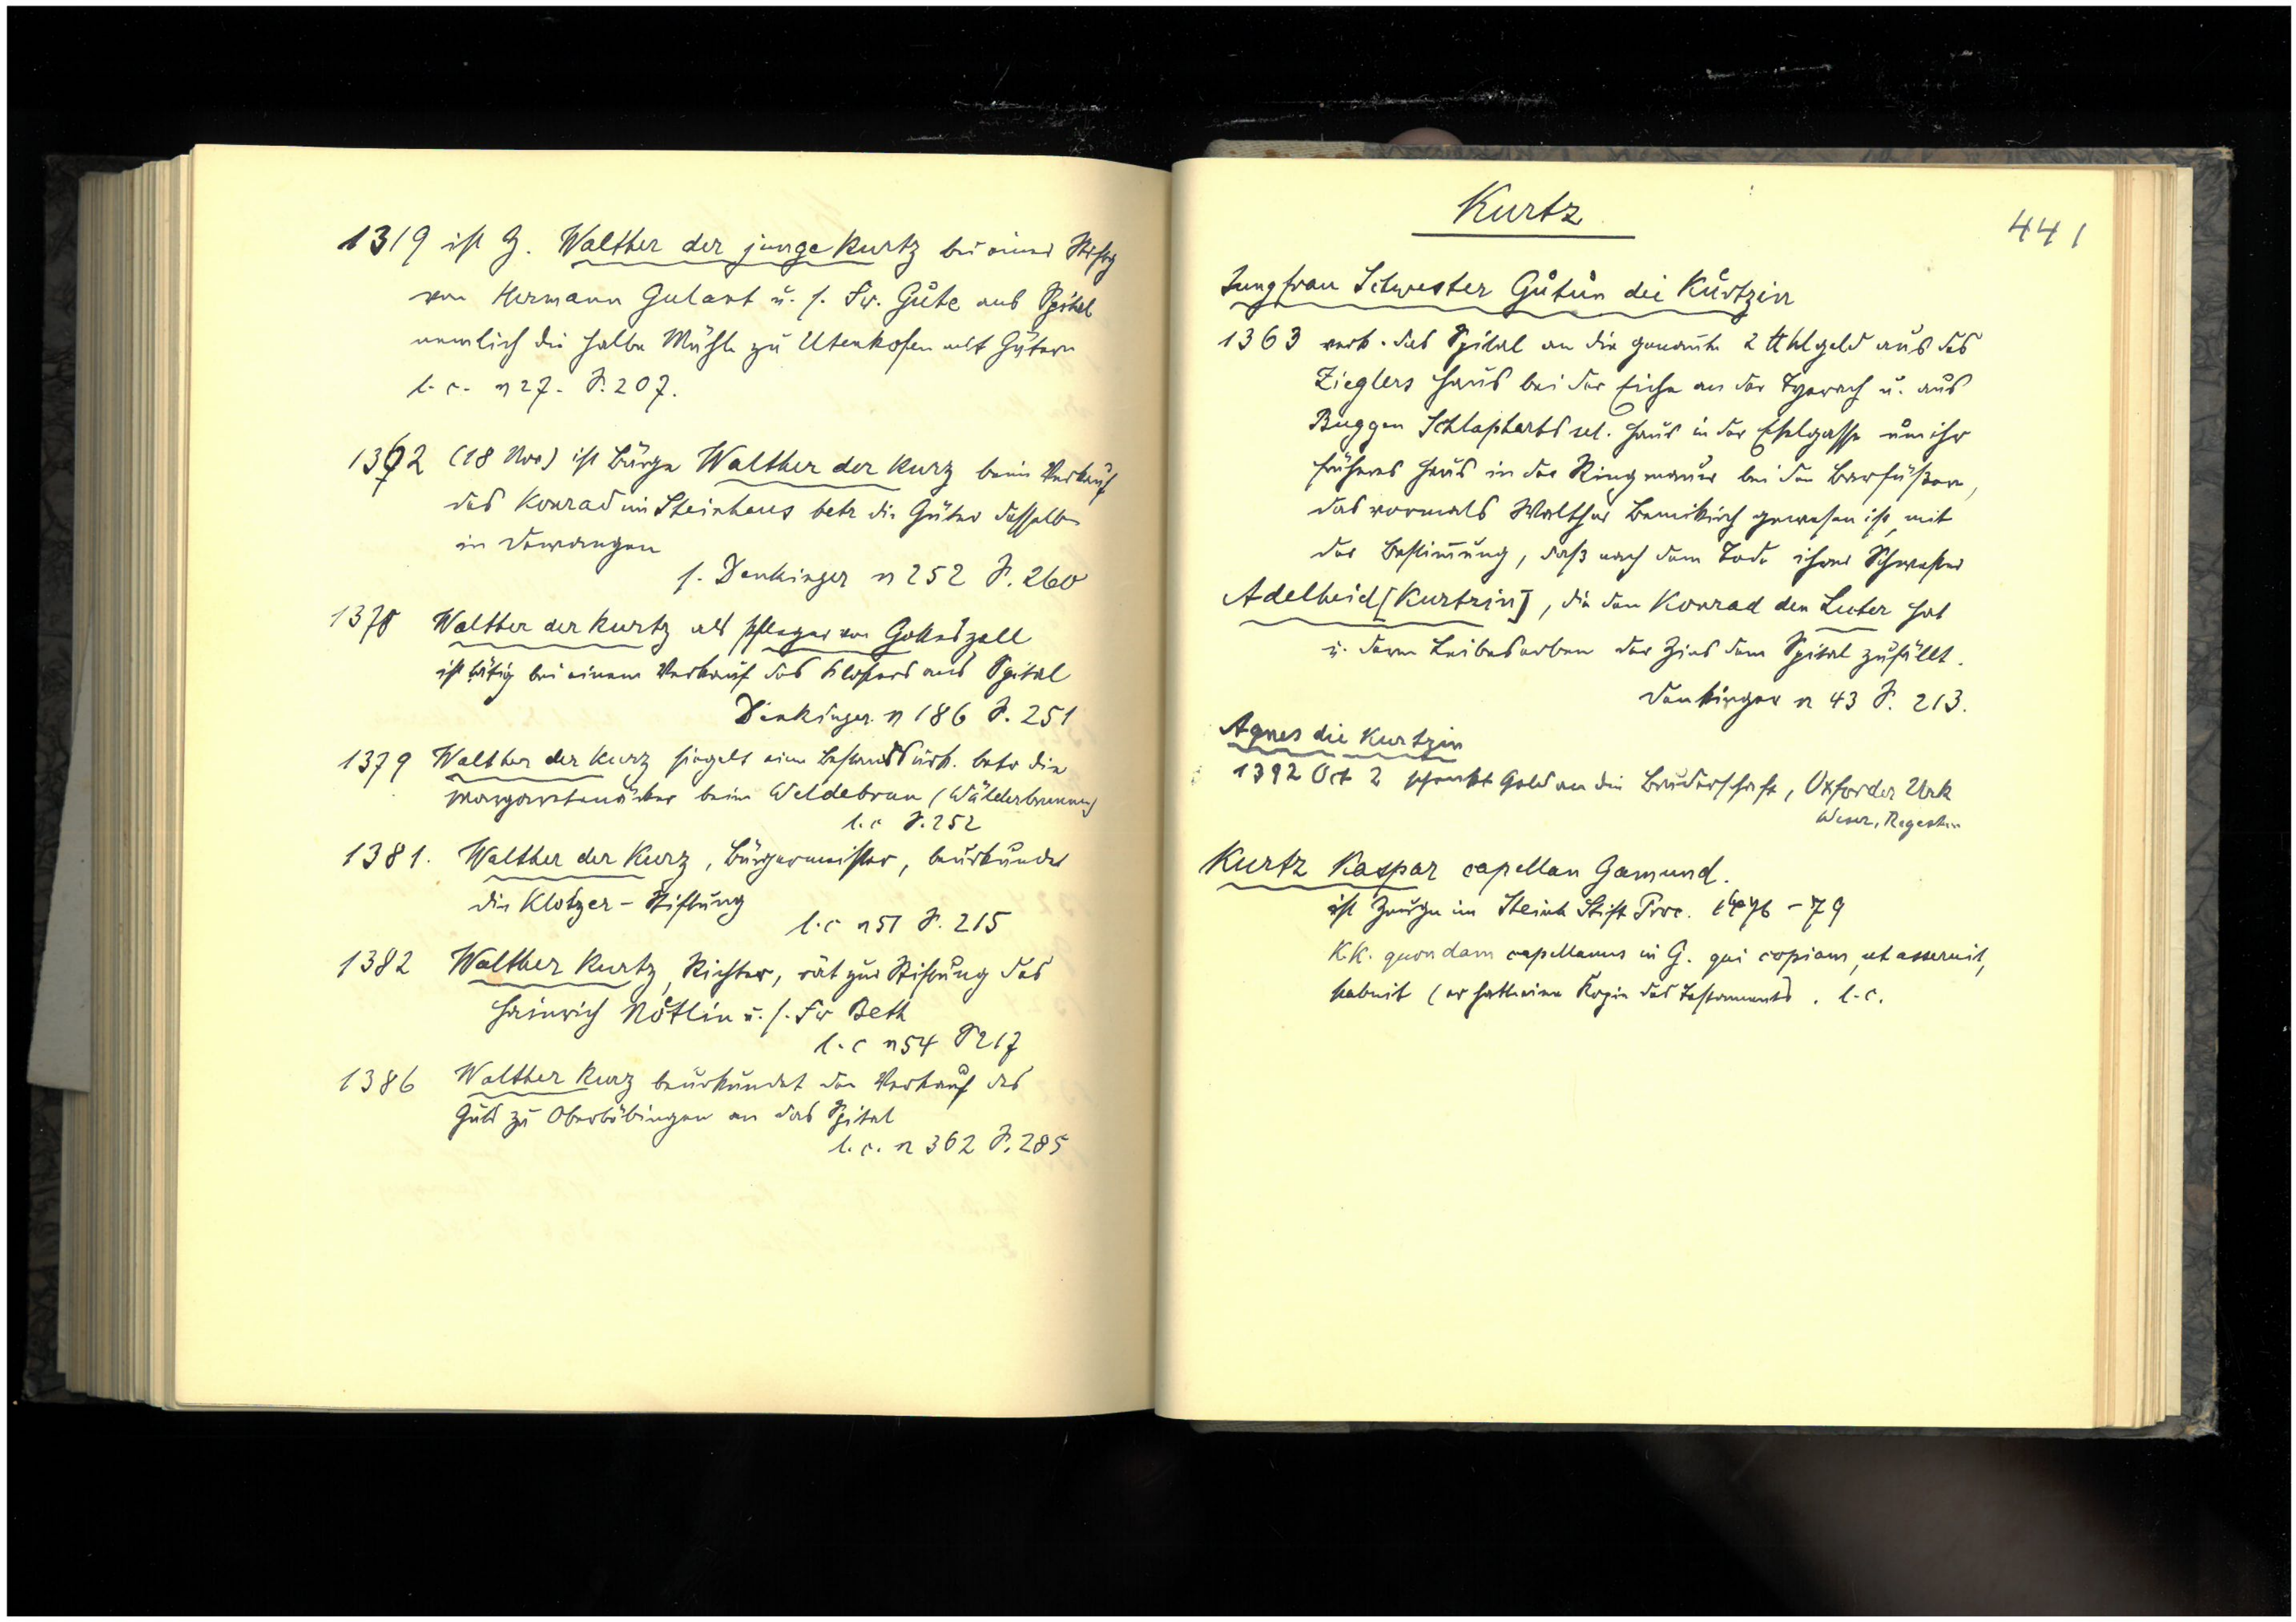 1319 ist Z. Walther der junge Kurtz bei einer Stiftg
von Hermann Gulant u. s. Fr. Gůte ans Spital
nemlich die halbe Mühle zu Utenkofen mit Gütern
l. c. n 27. S. 207.
1362 (18 Nov) ist Bürge Walther der Kurz beim Verkauf
des Konrad im Steinhaus betr die Güter desselben
in Dewangen
s. Denkinger n 252 S. 260
1370 Walther der Kurtz als Pfleger von Gotteszell
ist tätig bei einem Verkauf des Klosters ans Spital
Denkinger n 186 S. 251
1379 Walther der Kurz siegelt eine Bestandsurk. betr die
Margaretenäcker beim Weldebrun (Wälderbrunnen)
l. c S. 252
1381. Walther der Kurz, Bürgermeister, beurkundet
die Klotzer-Stiftung
l. c n 51 S. 215
1382 Walther Kurtz, Richter, rät zur Stiftung des
Heinrich Nötlin u. s. Fr Beth
l. c n 54 S 217
1386 Walther Kurz beurkundet den Verkauf des
Guts zu Oberböbingen an das Spital
l. c. n 362 S. 285
Kurtz
441
Jungfrau Schwester Gůtůn die Kůrtzin
1363 verk. das Spital an die genannte 2 ℔ hlgeld aus des
Zieglers Haus bei der Eiche an der Tyerach u. aus
Buggen Schlapharts sel. Haus in der Eselgasse um ihr
früheres Haus in der Ringmauer bei den Barfüßern,
das vormals Walther Bemikirch gewesen ist, mit
der Bestimmung, daß nach dem Tode ihrer Schwester
Adelheid [Kurtzin], die den Konrad den Luter hat
u. deren Leibeserben der Zins dem Spital zufällt.
Denkinger n 43 S. 213.
Agnes die Kurtzin
1392 Oct 2 schenkt Geld an die Bruderschaft, Oxforder Urk
Weser, Regesten
Kurtz Kaspar capellan Gamund.
ist Zeuge im Steinh Stift Proc. 1476 - 79
K.K. quondam capellanus in G. qui copiam, ut asseruit,
habuit (er hatte eine Kopie des Testaments. l. c.